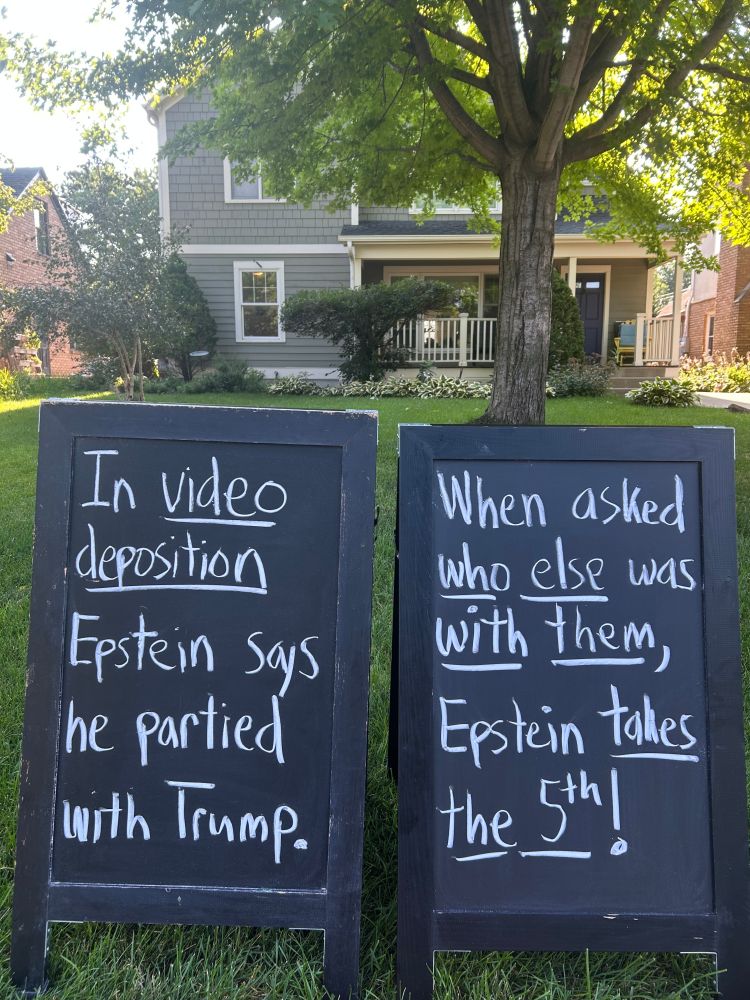 In video
deposition
Epstein says
he partied
with Trump.
When asked
who else was
with them,
Epstein takes
the 5th!